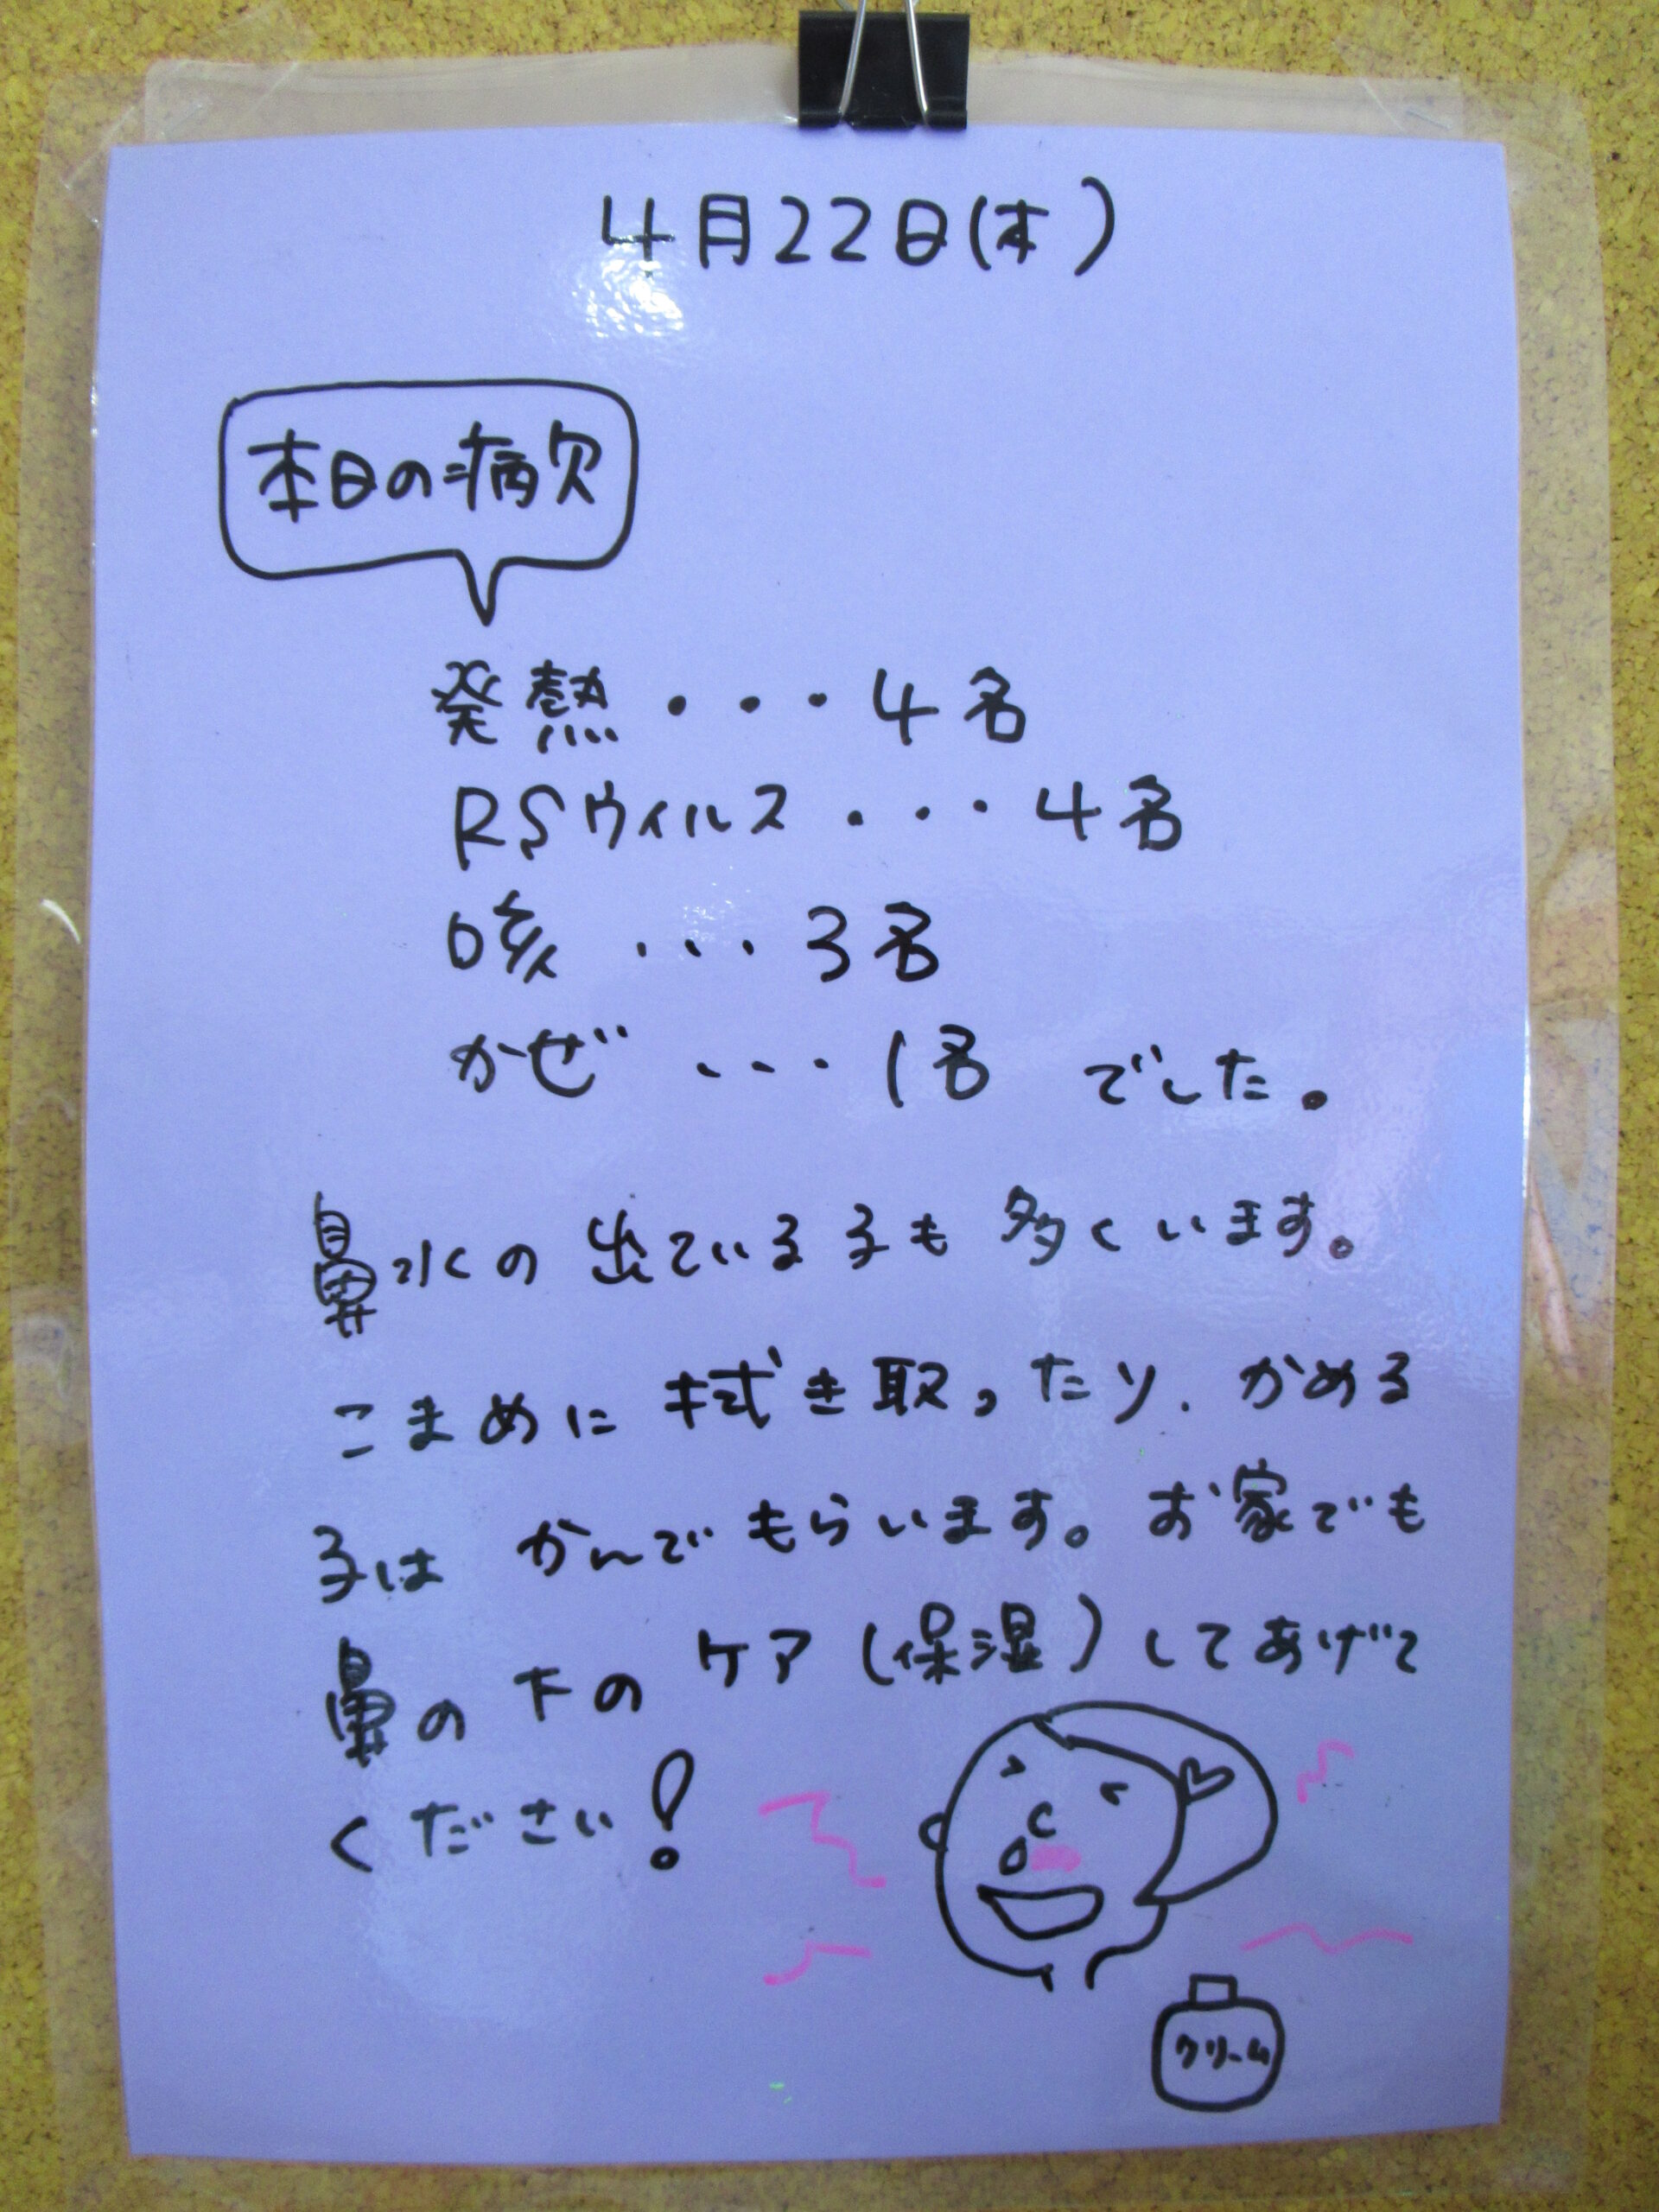 4月22日(木)
本日の病欠
発熱・・・4名
RSウィルス・・・4名
咳・・・3名
かぜ・・・1名 でした。
鼻水の出ている子も多くいます。
こまめに拭き取ったり、かめる
子は かんでもらいます。お家でも
鼻の下のケア(保湿)してあげて
ください!
クリーム